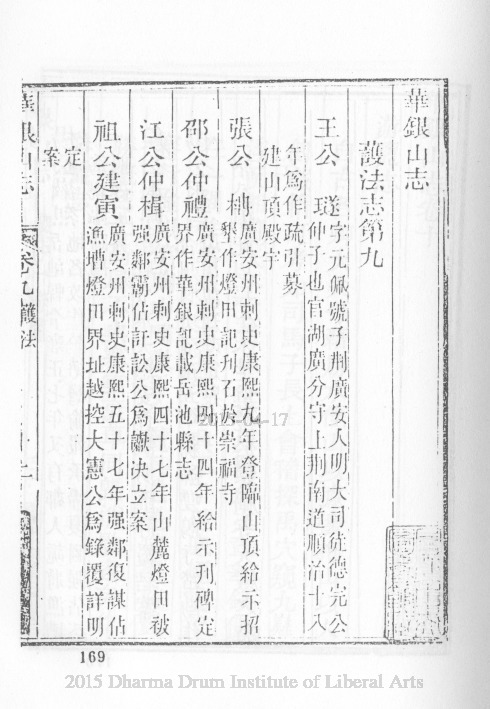 華銀山志
護法志第九
王公　璲字元佩號子荆廣安人明大司徒德完公
仲子也官湖廣分守上荆南道順治十八
年爲作疏引募
建山頂殿宇
張公　栴廣安州刺史康熙九年登臨山頂給示招
墾作燈田記刋石於崇福寺
邵公仲禮廣安州刺史康熙四十四年給示刋碑定
界作華銀記載岳池縣志
江公仲楫廣安州刺史康熙四十七年山麓燈田被
强鄰霸佔訐訟公爲讞决立案
祖公建寅廣安州刺史康熙五十七年强鄰復謀佔
漁墖燈田界址越控大憲公爲錄覆詳明
定
案
華銀山志　卷九護法
169
2015-04-17
2015 Dharma Drum Institute of Liberal Arts